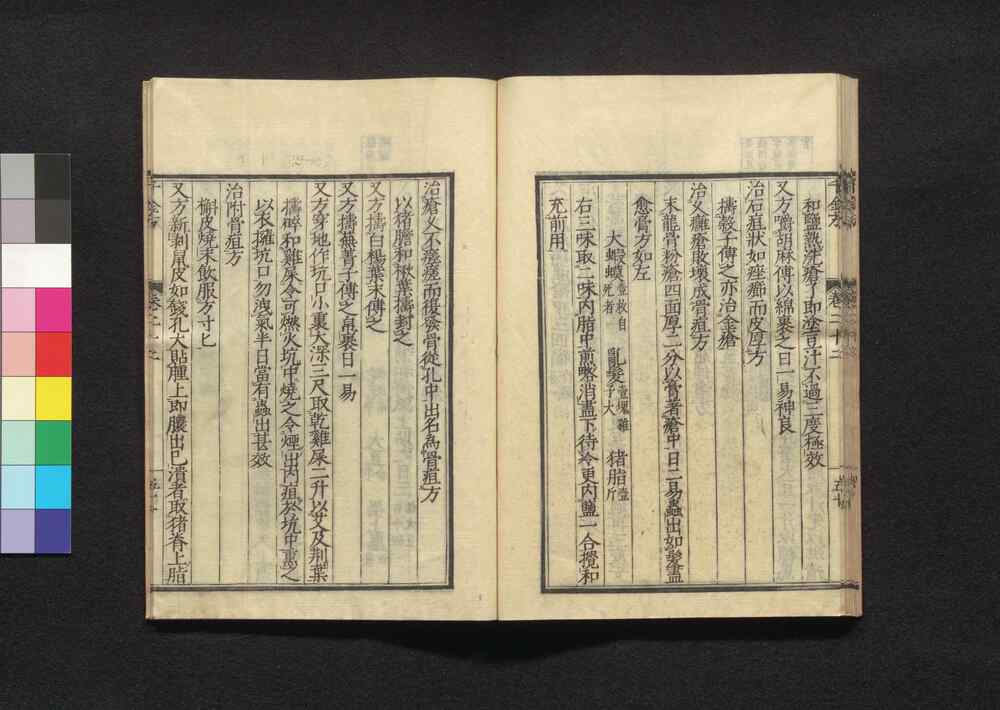 和鹽熱洗瘡了即塗豆汁不過三度極效
又方嚼胡麻傅以綿裹之日一易神良
治石疽狀如痤癤而皮厚方
擣穀子傅之亦治金瘡
治久癰瘡敗壞成骨疽方
末龍骨粉瘡四面厚二分以膏著瘡中日二易蟲出如髮盡
愈膏方如左
大蝦蟇壹枚自死者 亂髮壹塊雞子大 猪脂壹斤
右三味取二味内脂中煎畧消盡下待冷更内鹽一合攪和
充前用
治瘡久不瘥瘥而復發骨從孔中出名為骨疽方
以猪膽和楸葉擣封之
又方擣白楊葉末傅之
又方擣蕪菁子傅之帛裹日一易
又方穿地作坑口小裏大深三尺取乾雞屎二升以艾及荆葉
擣碎和雞屎令可燃火坑中燒之令煙出内疽於坑中熏之
以衣擁坑口勿洩氣半日當有蟲出甚效
治附骨疽方
槲皮燒末飲服方寸匕
又方新剝鼠皮如錢孔大貼腫上即膿出已潰者取猪脊上脂
千金方
卷二十二